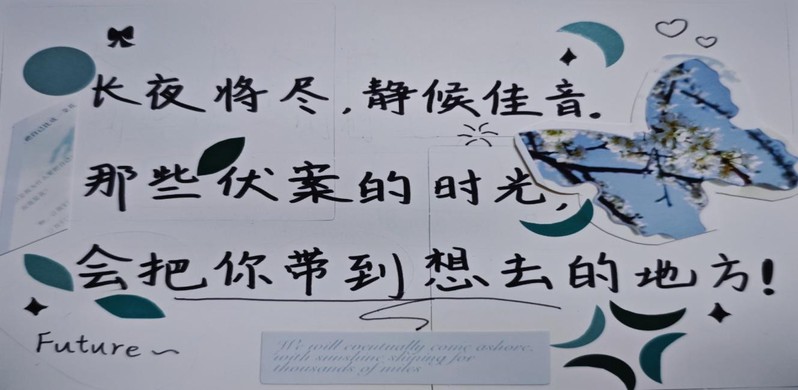 长夜将尽，静候佳音。
那些伏案的时光，
会把你带到想去的地方！
Future ~
We will eventually come ashore,
with sunshine shining for
thousands of miles